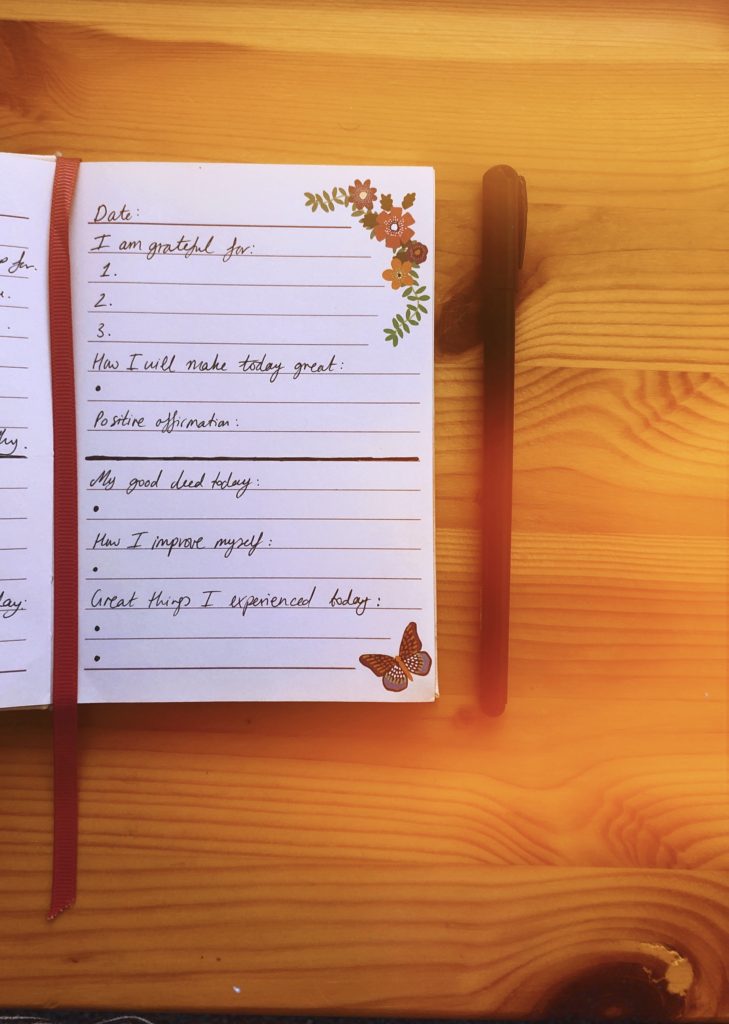 for.
hy.
day:
Date:
I am grateful for:
1.
2.
3.
How I will make today great:
•
Positive affirmation:
My good deed today:
•
How I improve myself:
•
Great things I experienced today:
•
•